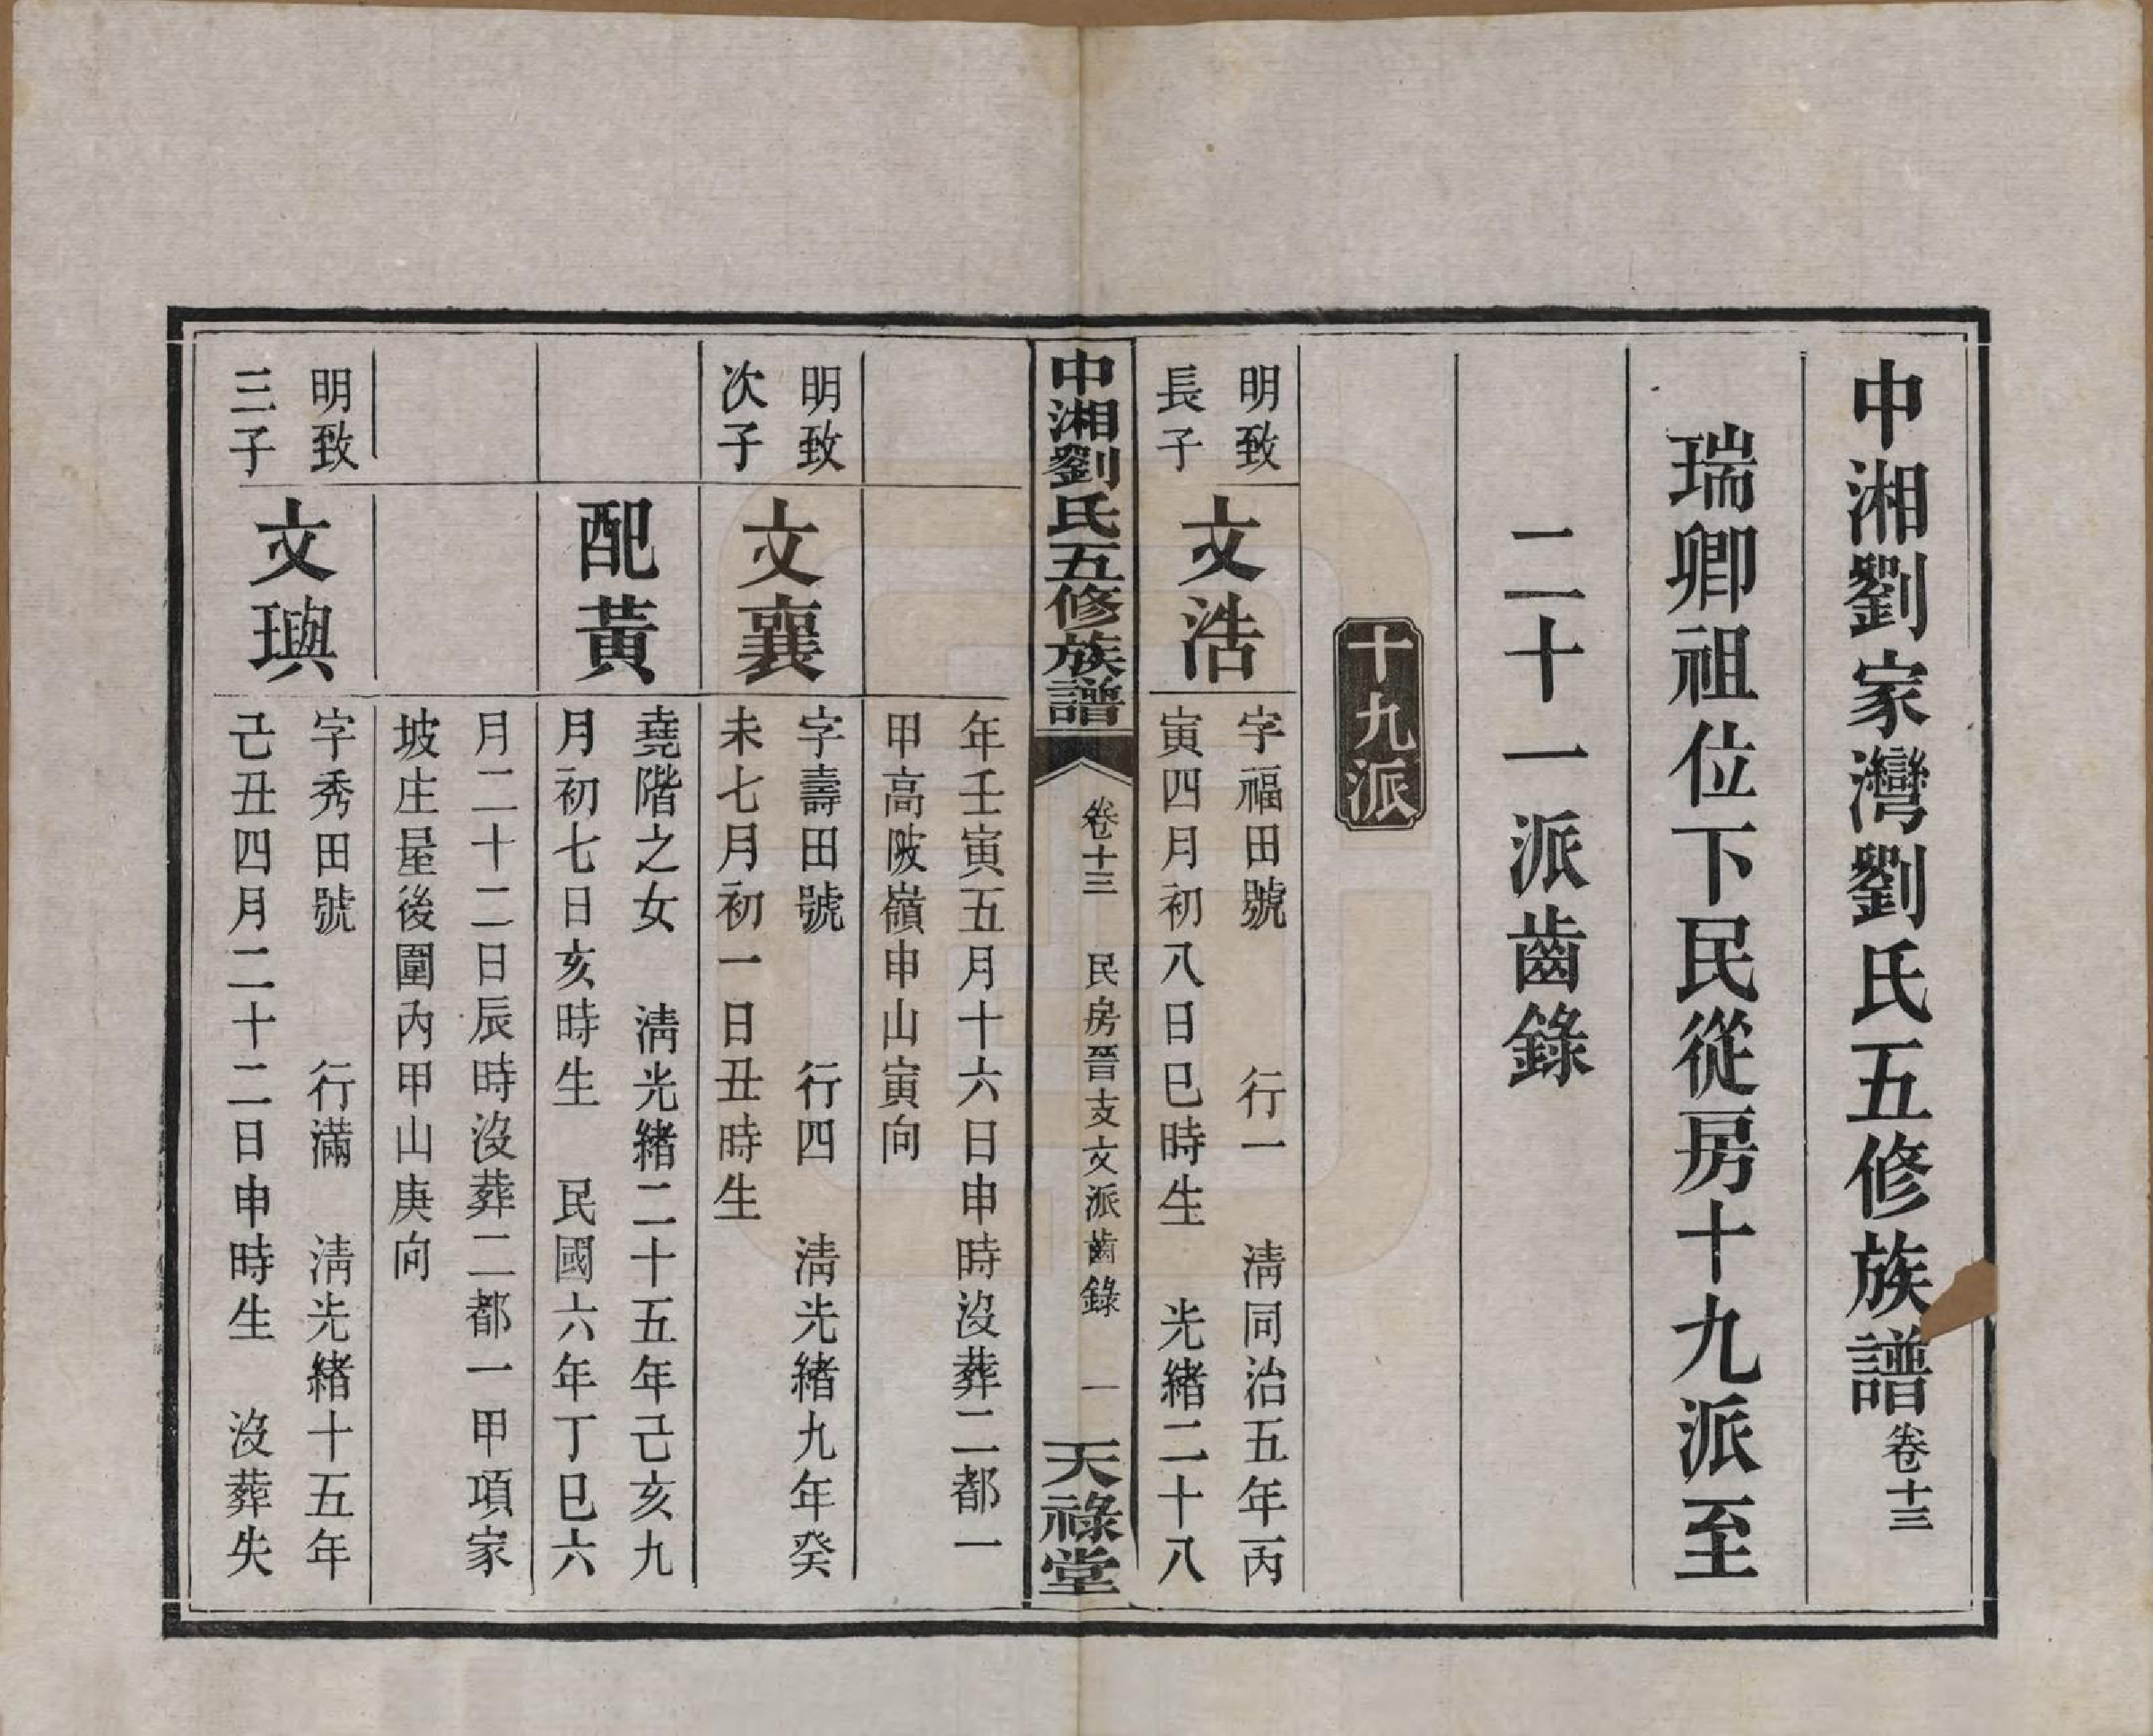 中湘劉家灣劉氏五修族譜卷十三
瑞卿祖位下民從房十九派至
二十一派齒錄
十九派
明致
長子
文浩
字福田號 行一 清同治五年丙
寅四月初八日巳時生 光緒二十八
中湘劉氏五修族譜 卷十三 民房晉支文派齒錄 一 天祿堂
年壬寅五月十六日申時沒葬二都一
甲高陂嶺申山寅向
明致
次子
文襄
字壽田號 行四 清光緒九年癸
未七月初一日丑時生
配黃
堯階之女 清光緒二十五年己亥九
月初七日亥時生 民國六年丁巳六
月二十二日辰時沒葬二都一甲項家
坡庄屋後圍內甲山庚向
明致
三子
文璵
字秀田號 行滿 清光緒十五年
己丑四月二十二日申時生 沒葬失